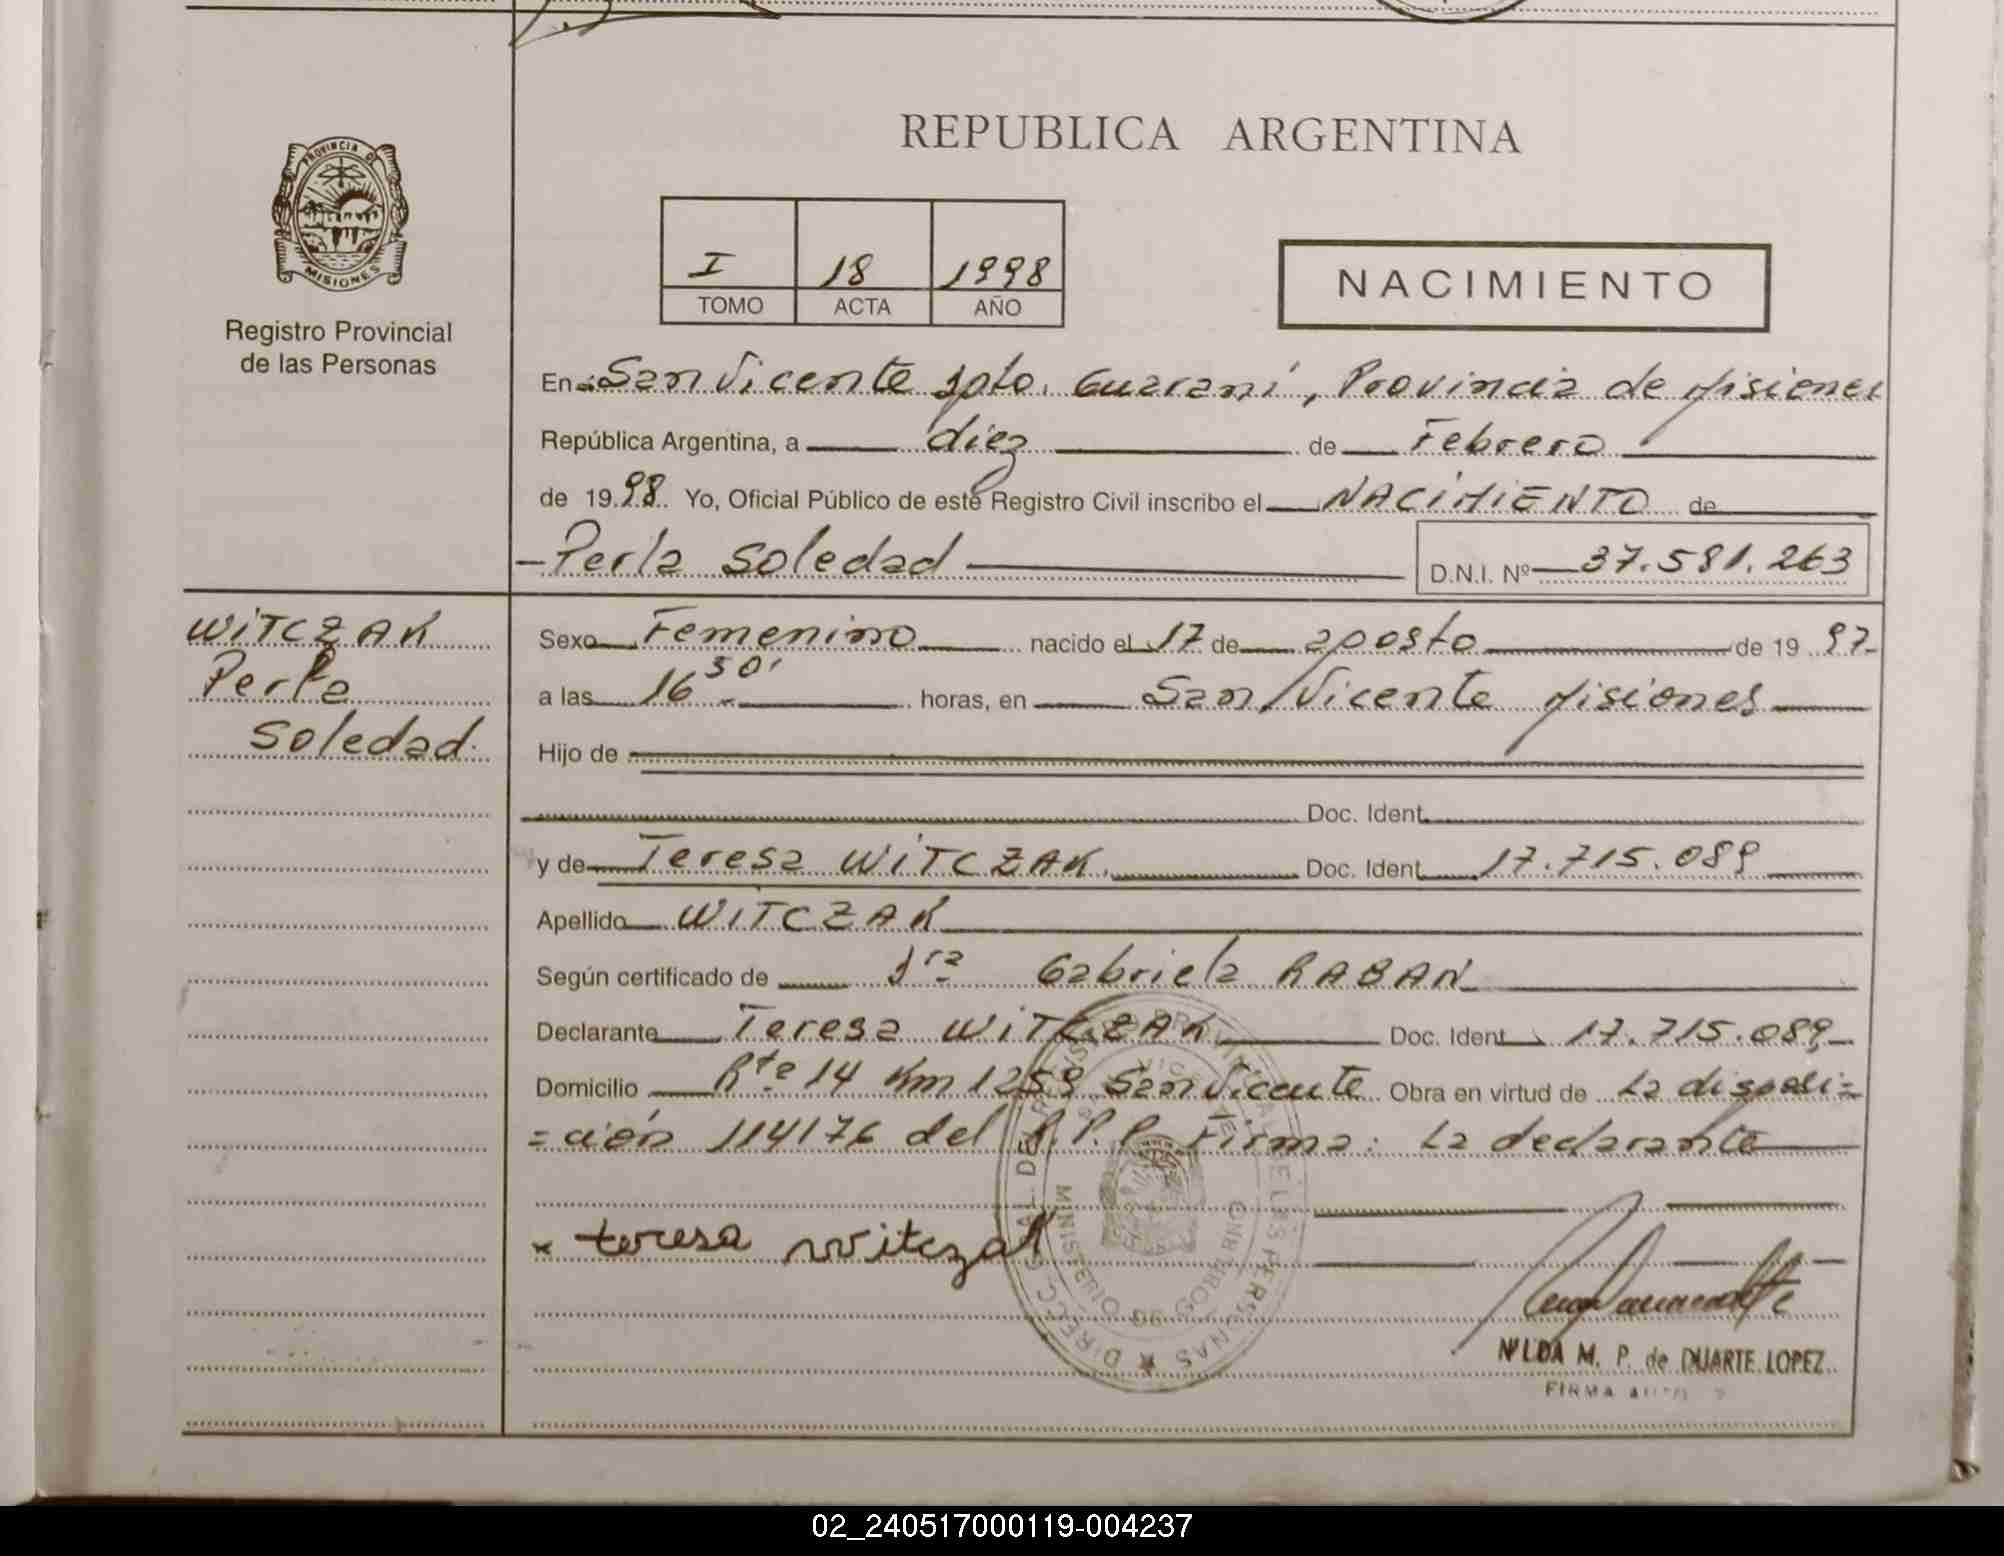 REPUBLICA ARGENTINA
PROVINCIA DE
MISIONES
Registro Provincial
de las Personas
I 18 1998
TOMO ACTA AÑO
NACIMIENTO
En San Vicente Dpto. Guaraní, Provincia de Misiones
República Argentina, a diez de Febrero
de 1998 Yo, Oficial Público de este Registro Civil inscribo el NACIMIENTO de
Perla Soledad D.N.I. Nº 37.581.263
WITCZAK
Perla
Soledad.
Sexo Femenino nacido el 17 de agosto de 1997
a las 16 30' horas, en San Vicente Misiones
Hijo de
Doc. Ident.
y de Teresa WITCZAK. Doc. Ident. 17.715.089
Apellido WITCZAK
Según certificado de Sra Gabriela RABAN
Declarante Teresa WITCZAK Doc. Ident. 17.715.089
Domicilio Rta 14 Km 1259 San Vicente Obra en virtud de La disposi=
=ción 114176 del R.P.P. Firma: La declarante
x teresa witczak
NILDA M. P. de DUARTE LOPEZ
FIRMA
02_240517000119-004237